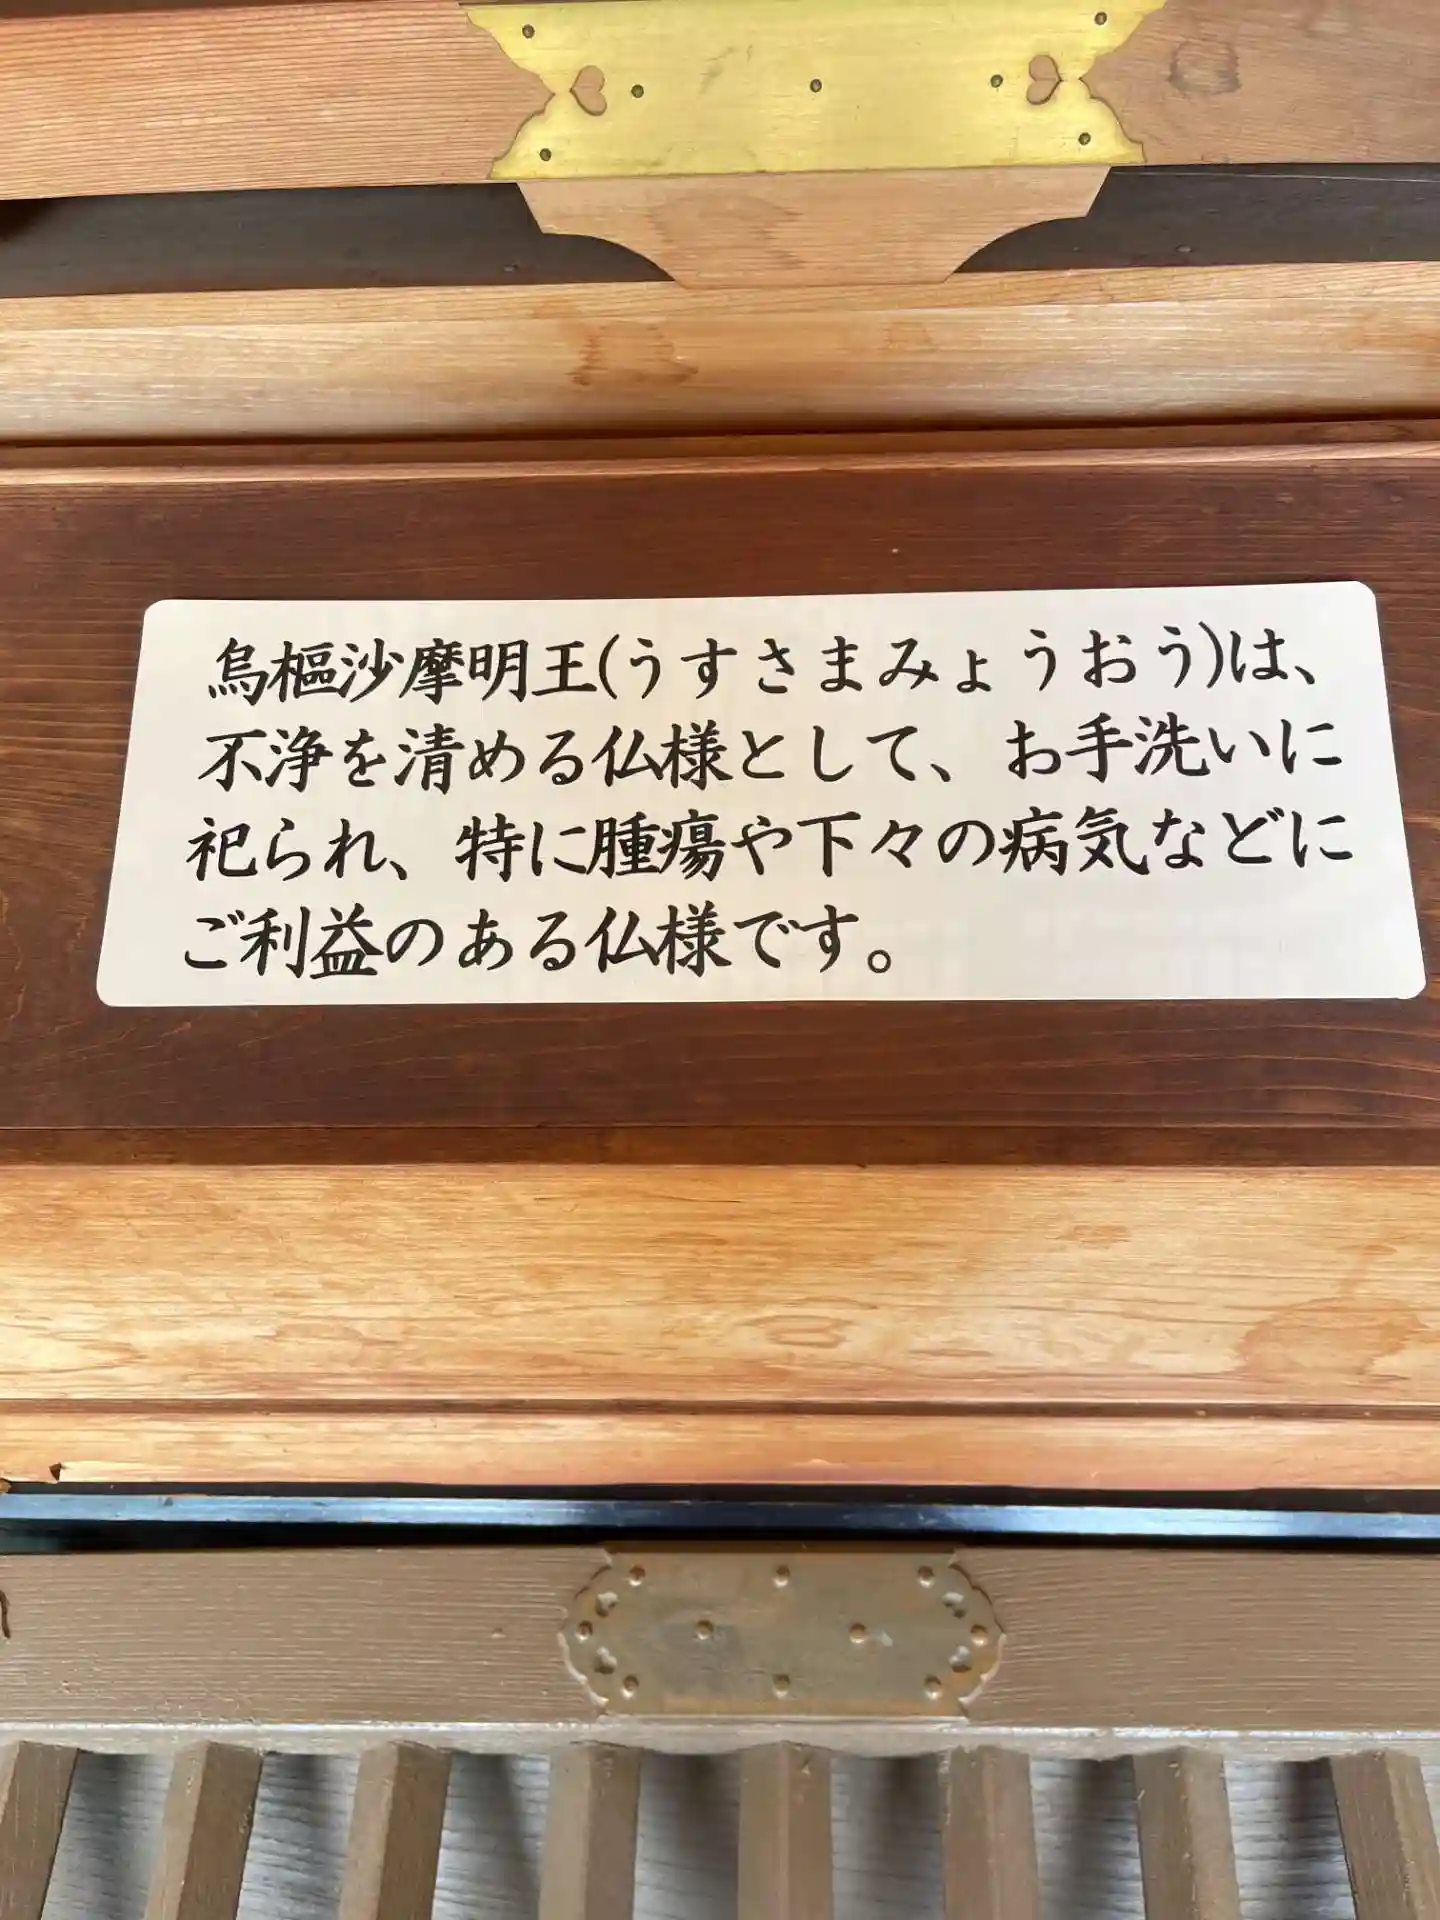 烏樞沙摩明王(うすさまみょうおう)は、
不浄を清める仏様として、お手洗いに
祀られ、特に腫瘍や下々の病気などに
ご利益のある仏様です。